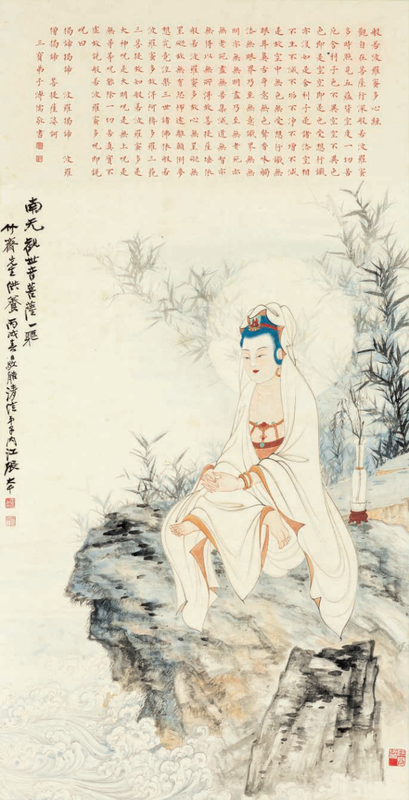 般若波羅蜜多心經
觀自在菩薩行深般若波羅蜜
多時照見五蘊皆空度一切苦
厄舍利子色不異空空不異色
色即是空空即是色受想行識
亦復如是舍利子是諸法空相
不生不滅不垢不淨不增不減
是故空中無色無受想行識無
眼耳鼻舌身意無色聲香味觸
法無眼界乃至無意識界無無
明亦無無明盡乃至無老死亦
無老死盡無苦集滅道無智亦
無得以無所得故菩提薩埵依
般若波羅蜜多故心無罣礙無
罣礙故無有恐怖遠離顛倒夢
想究竟涅槃三世諸佛依般若
波羅蜜多故得阿耨多羅三藐
三菩提故知般若波羅蜜多是
大神呪是大明呪是無上呪是
無等等呪能除一切苦真實不
虛故說般若波羅蜜多呪即說
呪曰
揭諦揭諦 波羅揭諦 波羅
僧揭諦 菩提薩婆訶
三寶弟子溥儒敬書
南无觀世音菩薩一軀
竹齋先生供養丙戌清信弟子內江張大千